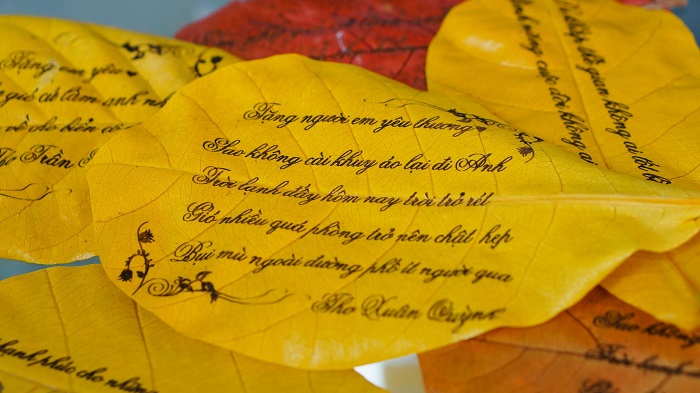 Tặng người em yêu thương
Sao không cài khuy áo lại đi Anh
Trời lạnh đấy hôm nay trời trở rét
Gió nhiều quá phòng trở nên chật hẹp
Bụi mù ngoài đường phố ít người qua
Thơ Xuân Quỳnh
Tặng em yêu
gió cứ cầm anh
về cho biển
Thơ Trần
cuộc đời không ai
quan không ai tồi
hạnh phúc cho những
Sao không
Trời lạnh